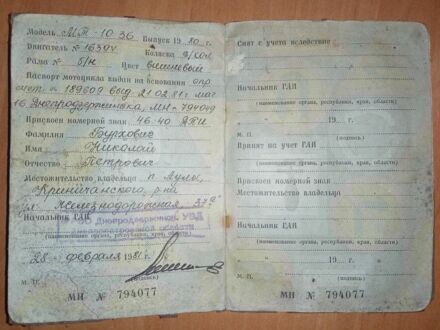 Модель МТ-10-36 Выпуск 1980 г.
Двигатель № Коляска
Рама № б/н Цвет вишневый
Паспорт мотоцикла выдан на основании спр
счет - 189609 выд 21.02.81 г маг
16 Днепродзержинска, МН № 794049
Присвоен номерной знак 46-40
Фамилия Бурхович
Имя Николай
Отчество Петрович
Местожительство владельца п. Аулы,
Криничанского р-на
ул. Железнодорожная
Начальник ГАИ
Днепродзержинск. УВД
Днепропетровской области
(наименование органа, республики, края, области)
28 февраля 1981 г.
М. П. (подпись)
МН № 794077
Снят с учета вследствие
Начальник ГАИ
(наименование органа, республики, края, области)
19 г.
М. П. (подпись)
Принят на учет ГАИ
Присвоен номерной знак
Местожительство владельца
Начальник ГАИ
(наименование органа, республики, края, области)
19 г.
М. П. (подпись)
МН № 794077